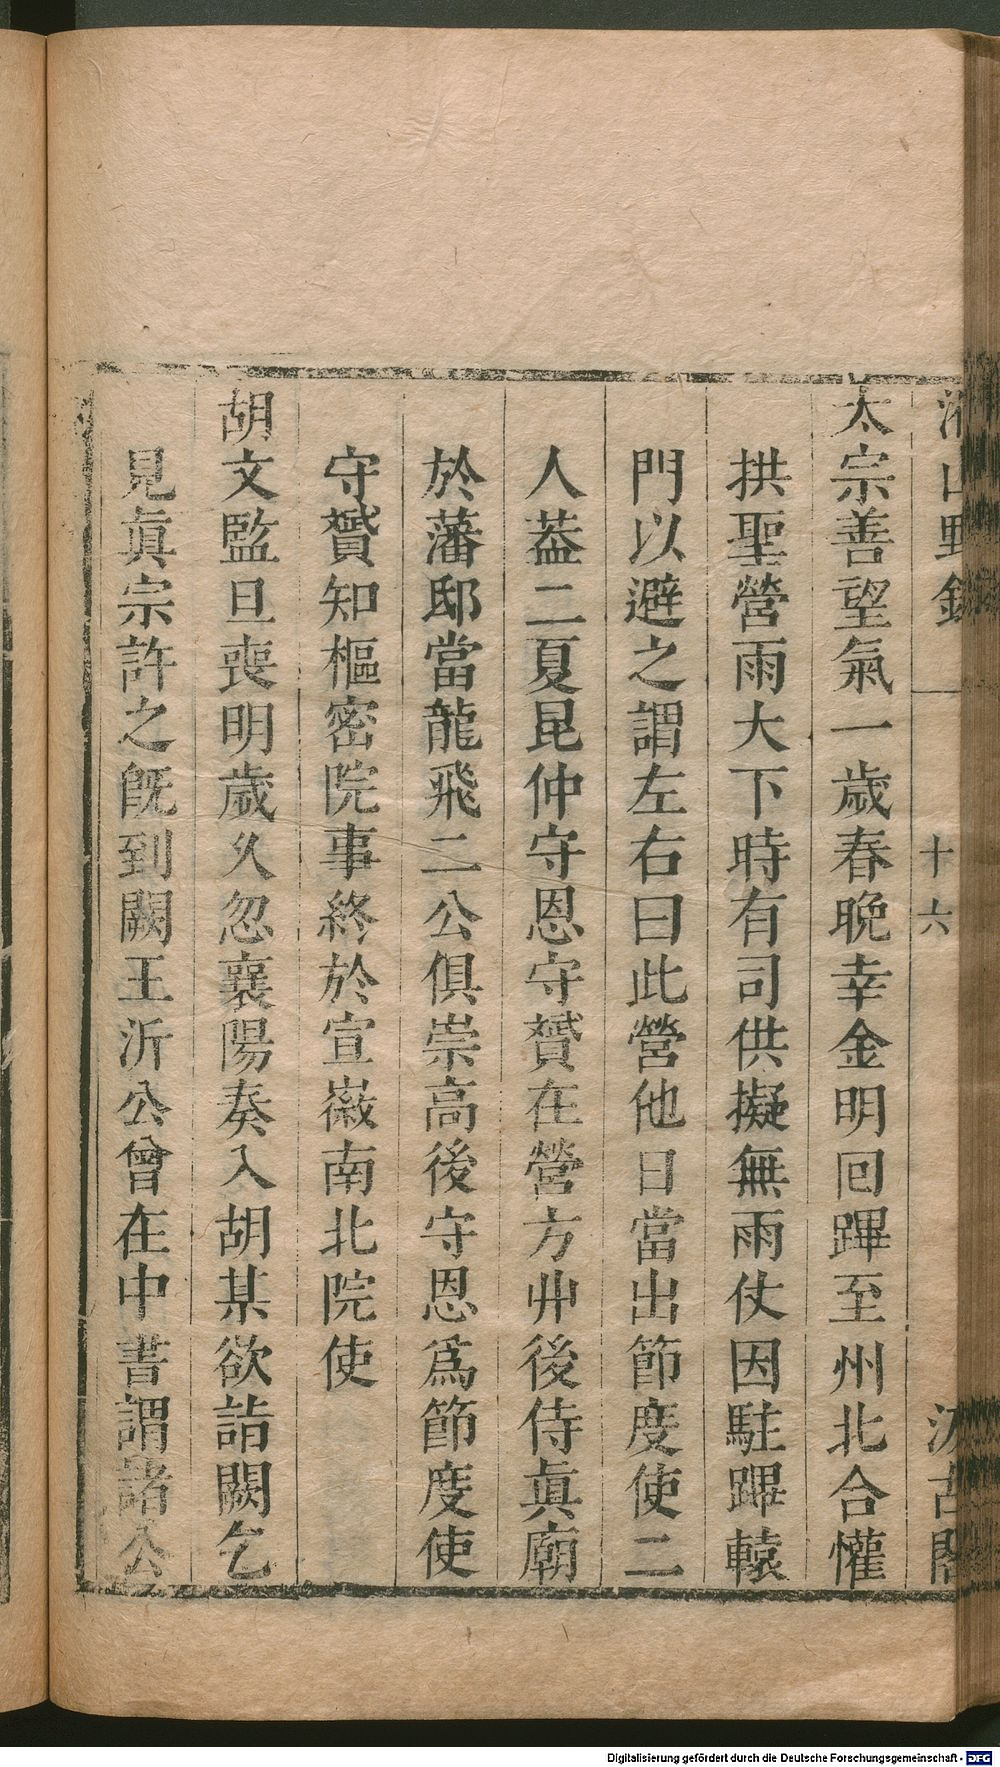 湘山野錄
十六
汲古閣
太宗善望氣一歲春晚幸金明回蹕至州北合懽
拱聖營雨大下時有司供擬無雨仗因駐蹕轅
門以避之謂左右曰此營他日當出節度使二
人葢二夏昆仲守恩守贇在營方丱後侍眞廟
於藩邸當龍飛二公俱崇高後守恩爲節度使
守贇知樞密院事終於宣徽南北院使
胡文監旦喪明歲久忽襄陽奏入胡某欲詣闕乞
見眞宗許之旣到闕王沂公曾在中書謂諸公
Digitalisierung gefördert durch die Deutsche Forschungsgemeinschaft - DFG